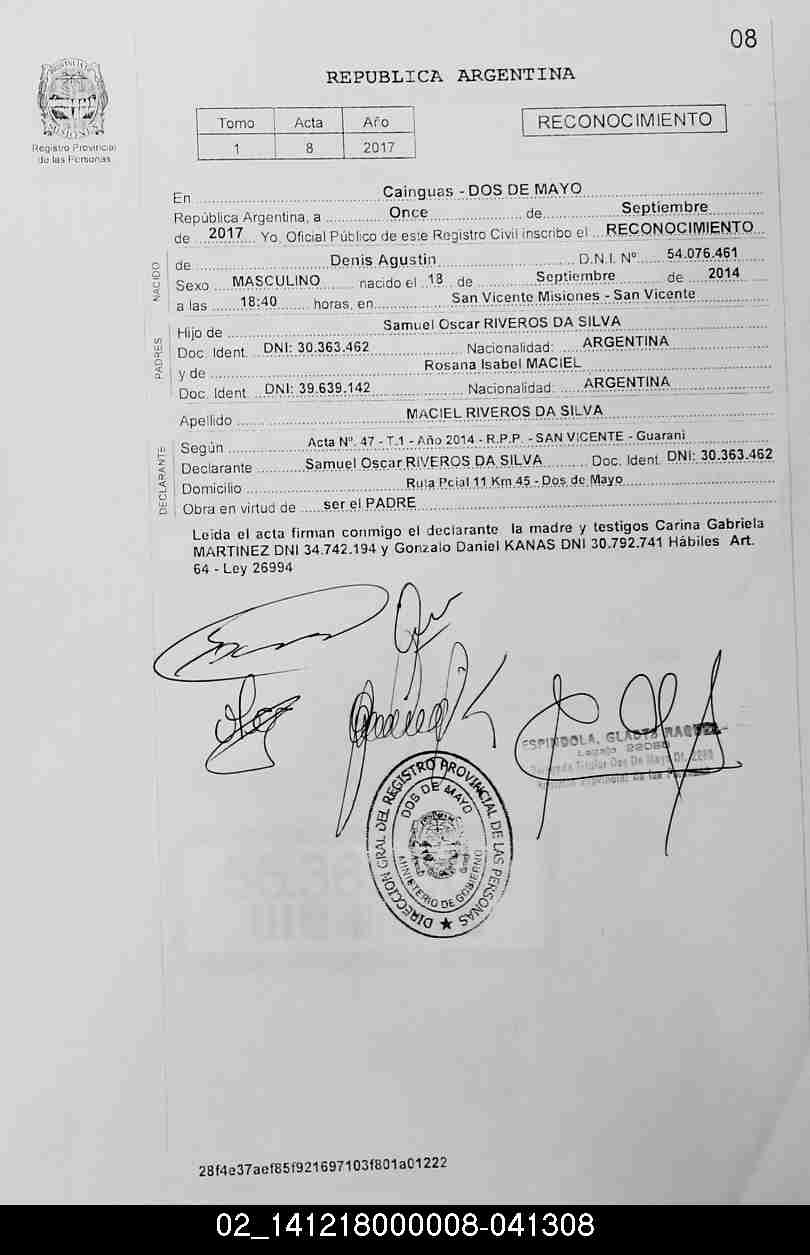 08
REPUBLICA ARGENTINA
Registro Provincial
de las Personas
Tomo Acta Año
1 8 2017
RECONOCIMIENTO
En Cainguas - DOS DE MAYO
República Argentina, a Once de Septiembre
de 2017 Yo, Oficial Público de este Registro Civil inscribo el RECONOCIMIENTO
NACIDO
de Denis Agustin D.N.I. Nº 54.076.461
Sexo MASCULINO nacido el 18 de Septiembre de 2014
a las 18:40 horas, en San Vicente Misiones - San Vicente
PADRES
Hijo de Samuel Oscar RIVEROS DA SILVA
Doc. Ident. DNI: 30.363.462 Nacionalidad: ARGENTINA
y de Rosana Isabel MACIEL
Doc. Ident. DNI: 39.639.142 Nacionalidad: ARGENTINA
Apellido MACIEL RIVEROS DA SILVA
DECLARANTE
Según Acta Nº. 47 - T.1 - Año 2014 - R.P.P. - SAN VICENTE - Guarani
Declarante Samuel Oscar RIVEROS DA SILVA Doc. Ident. DNI: 30.363.462
Domicilio Ruta Pcial 11 Km 45 - Dos de Mayo
Obra en virtud de ser el PADRE
Leida el acta firman conmigo el declarante la madre y testigos Carina Gabriela
MARTINEZ DNI 34.742.194 y Gonzalo Daniel KANAS DNI 30.792.741 Hábiles Art.
64 - Ley 26994
ESPINDOLA, GLADYS RAQUEL
Legajo 22080
DIRECCION GRAL DEL REGISTRO PROVINCIAL DE LAS PERSONAS
DOS DE MAYO
MINISTERIO DE GOBIERNO
28f4e37aef85f921697103f801a01222
02_141218000008-041308